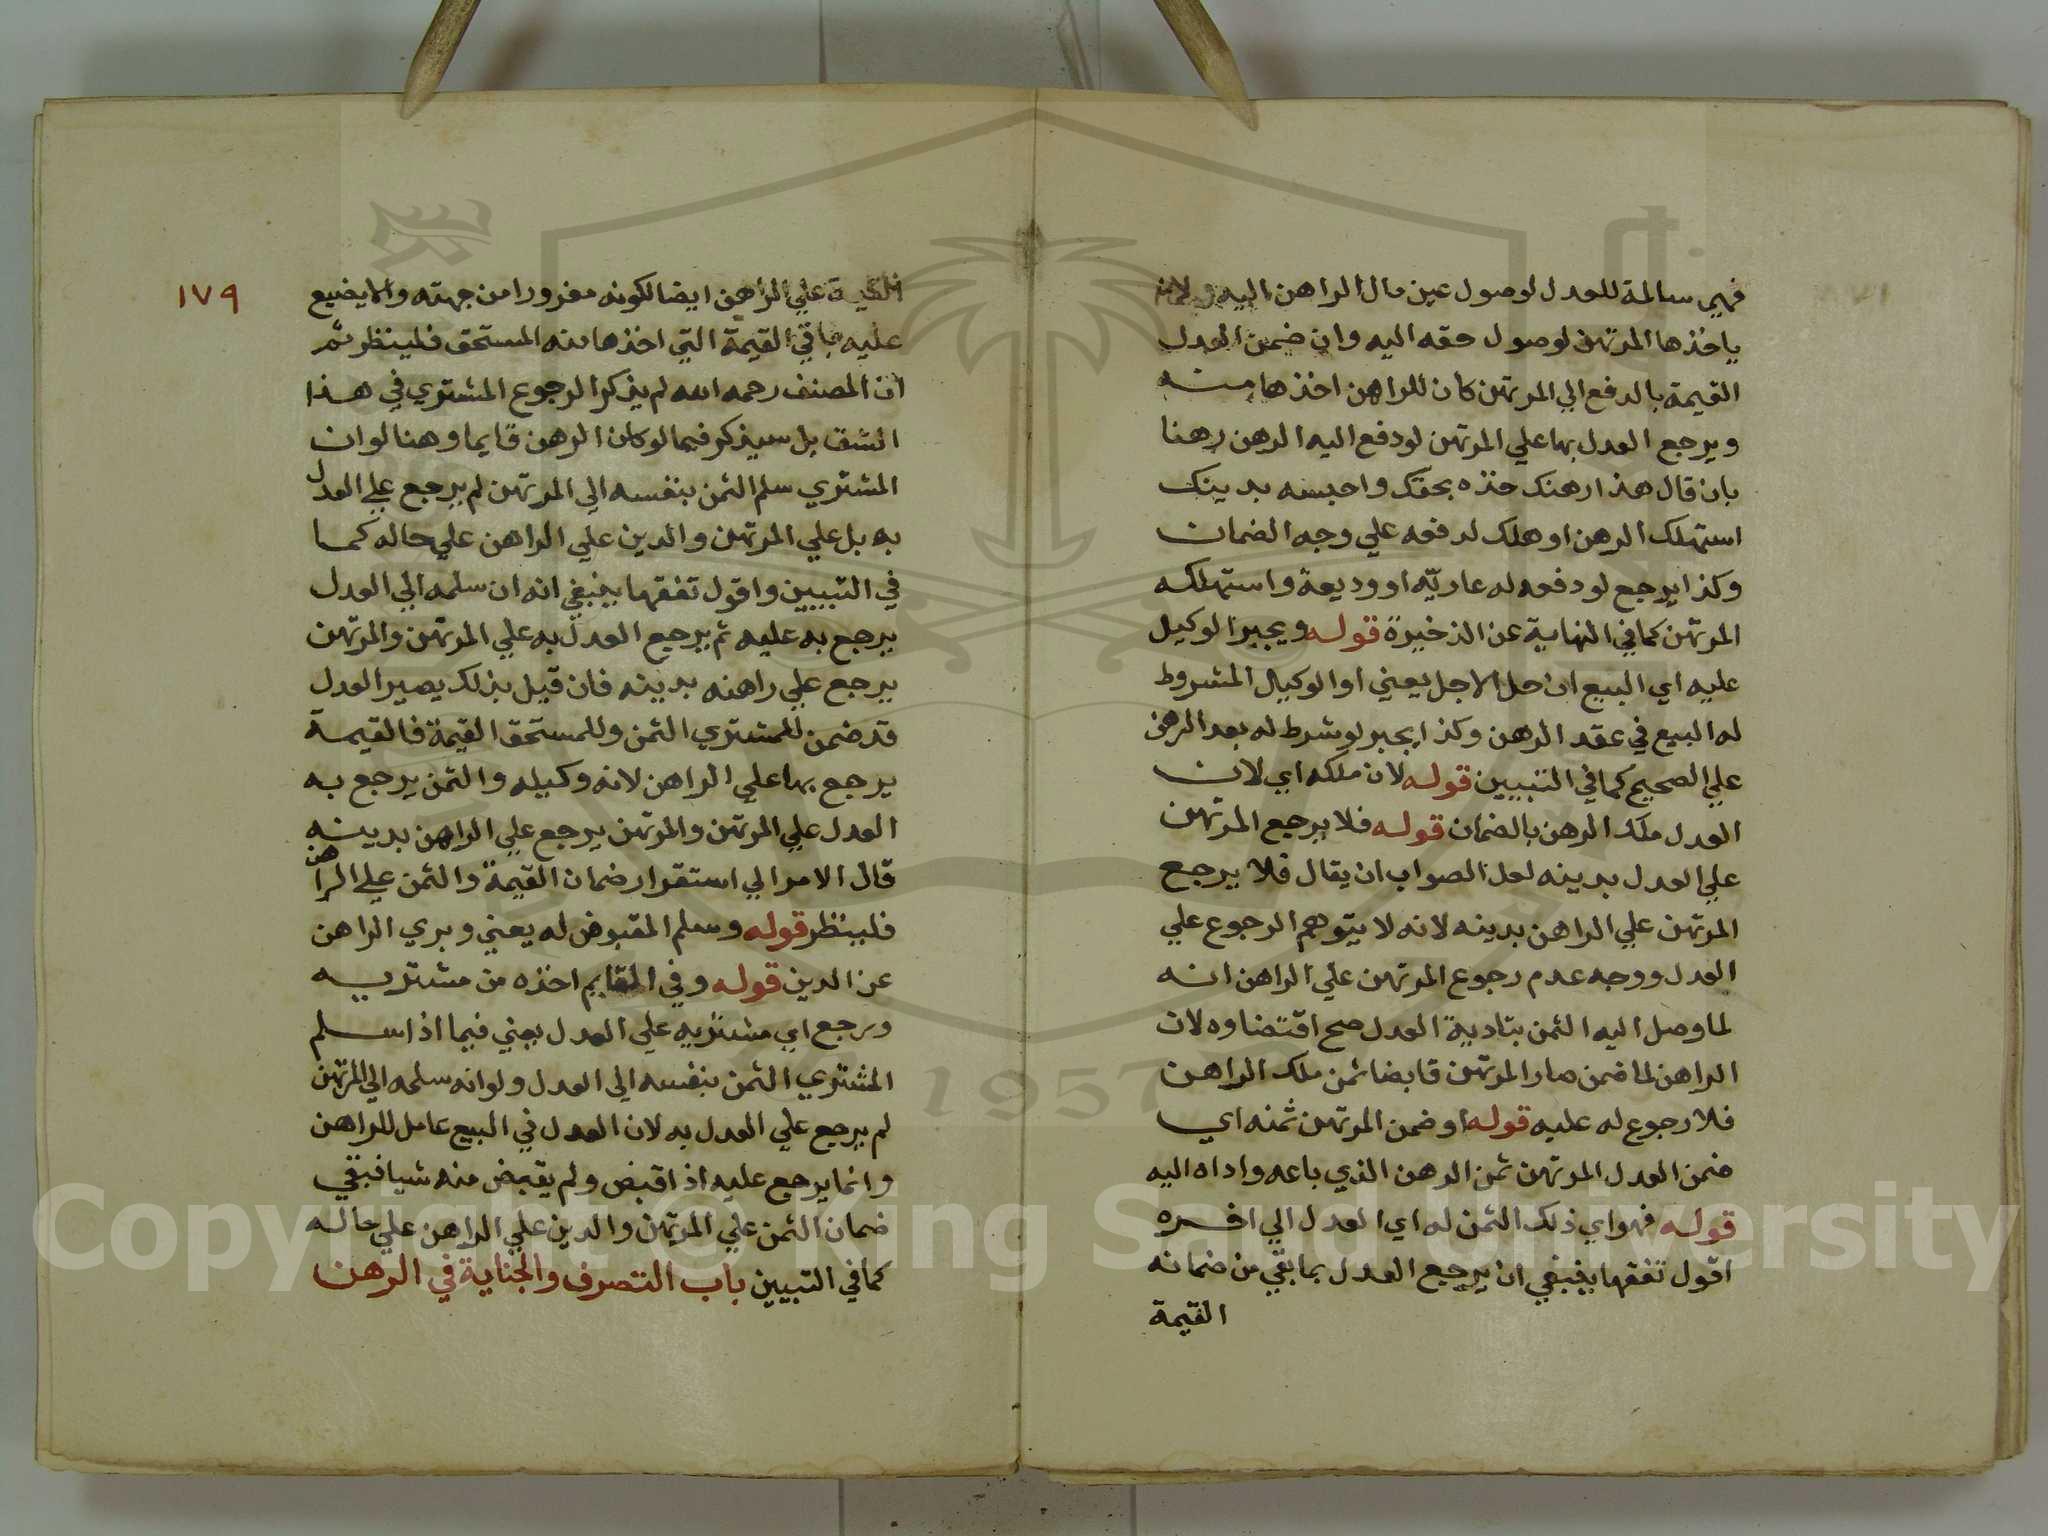 فهي سالمة للعدل لوصول عين مال الراهن اليه ولانه
ياخذها المرتهن لوصول حقه اليه وان ضمن العدل
القيمة بالدفع الي المرتهن كان للراهن اخذها منه
ويرجع العدل بها علي المرتهن لو دفع اليه الرهن رهنا
بان قال هذا رهنك خذه بحقك واحبسه بدينك
استهلك الرهن او هلك لدفعه علي وجه الضمان
وكذا يرجع لو دفعه له عارية او وديعة واستهلكه
المرتهن كما في النهاية عن الذخيرة قوله ويجبر الوكيل
عليه اي البيع ان حل الاجل يعني او الوكيل المشروط
له البيع في عقد الرهن وكذا يجبر لو شرط له بعد الرهن
علي الصحيح كما في التبيين قوله لان ملكه اي لان
العدل ملك الرهن بالضمان قوله فلا يرجع المرتهن
علي العدل بدينه لعل الصواب ان يقال فلا يرجع
المرتهن علي الراهن بدينه لانه لا يتوهم الرجوع علي
العدل ووجه عدم رجوع المرتهن علي الراهن انه
لما وصل اليه الثمن بتادية العدل صح اقتضاوه لان
الراهن لما ضمن صار المرتهن قابضا ثمن ملك الراهن
فلا رجوع له عليه قوله او ضمن المرتهن ثمنه اي
ضمن العدل المرتهن ثمن الرهن الذي باعه واداه اليه
قوله فهو اي ذلك الثمن له اي العدل الي اخره
اقول تفقها ينبغي ان يرجع العدل بما بقي من ضمانه
القيمة
١٧٩
القيمة علي الراهن ايضا لكونه مغرورا من جهته والا يضيع
عليه باقي القيمة التي اخذها منه المستحق فلينظر ثم
ان المصنف رحمه الله لم يذكر الرجوع المشتري في هذا
الشق بل سيذكر فيما لو كان الرهن قايما وهنا لو ان
المشتري سلم الثمن بنفسه الي المرتهن لم يرجع علي العدل
به بل علي المرتهن والدين علي الراهن علي حاله كما
في التبيين واقول تفقها ينبغي انه ان سلمه الي العدل
يرجع به عليه ثم يرجع العدل به علي المرتهن والمرتهن
يرجع علي راهنه بدينه فان قيل بذلك يصير العدل
قد ضمن للمشتري الثمن وللمستحق القيمة فالقيمة
يرجع بها علي الراهن لانه وكيله والثمن يرجع به
العدل علي المرتهن والمرتهن يرجع علي الراهن بدينه
قال الامر الي استقرار ضمان القيمة والثمن علي الراهن
فلينظر قوله وسلم المقبوض له يعني وبري الراهن
عن الدين قوله وفي القايم اخذه من مشتريه
ورجع اي مشتريه علي العدل يعني فيما اذا سلم
المشتري الثمن بنفسه الي العدل ولو انه سلمه الي المرتهن
لم يرجع علي العدل به لان العدل في البيع عامل للراهن
وانما يرجع عليه اذا قبض ولم يقبض منه شيا فبقي
ضمان الثمن علي المرتهن والدين علي الراهن علي حاله
كما في التبيين باب التصرف والجناية في الرهن
Copyright © King Saud University
1957